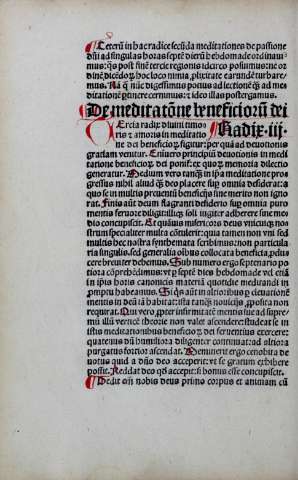 ¶Ceterũ in hac radice secũda meditationes de passione
dñi ad singulas horas septẽ dierũ hebdomade ordinaui-
mus: qs post finẽ tercie regionis idcirco posuimus: ne or-
dinẽ dicẽdoꝝ hoc loco nimia plixitate earundẽ turbare-
mus. Na
De meditatõne beneficioꝝ dei
Radix .iij.
Tercia radix diuini timo-
ris & amoris in meditatio
ne dei beneficioꝝ figitur: per quã ad deuotionis
gratiam venitur. Et nũero principiũ deuotionis in medi-
tatione beneficioꝝ dei ponit̃: ex quoꝝ memoria dilectio
generatur. Medium vero tanq̃ in ip̃a meditatione pro-
gressus nihil aliud q̃ deo placere sup omnia desiderat: a
quo se in multis preuentũ beneficijs sine merito non igno-
rat. Finis aũt deum flagranti desiderio sup omnia puro
mentis feruore diligit: illiq̃ soli iugiter adherere sine me-
dio concupiscit. Et quãuis misericors deus vnicuiq̃ nos-
trum specialiter multa cõtulerit: que tamen non vni sed
multis hec nostra synthemata scribimus: non particula-
ria singulis, sed generalia oĩbus collocata beneficia, pdu-
cere breuiter debemus. Sub numero ergo septenario po-
tiora cõprehẽdimus: vt p septẽ dies hebdomade vel etiã
in ip̃is horis canonicis materiã quottidie meditandi in
promptu habeamus. Si q̃s aũt in altioribus
mentis in deũ iã habitat: ista tanq̃ nouicijs pposita non
requirat. Qui vero ppter infirmitatẽ mentis sue ad supre-
mũ illũ verticẽ theorie non valet ascendere: studeat se in
istis meditationibus beneficioꝝ dei feruentius exercere:
quatenus dum humiliora diligenter continuat: ad altiora
purgatus fortior ascendat. Meminerit ergo cenobita de-
uotus quid a dño deo acceperit: vt se gratum exhibere
possit. Reddat deo q̃d accepit: si bonus esse concupiscit.
¶Dedit em̃ nobis deus primo corpus et animam cũ